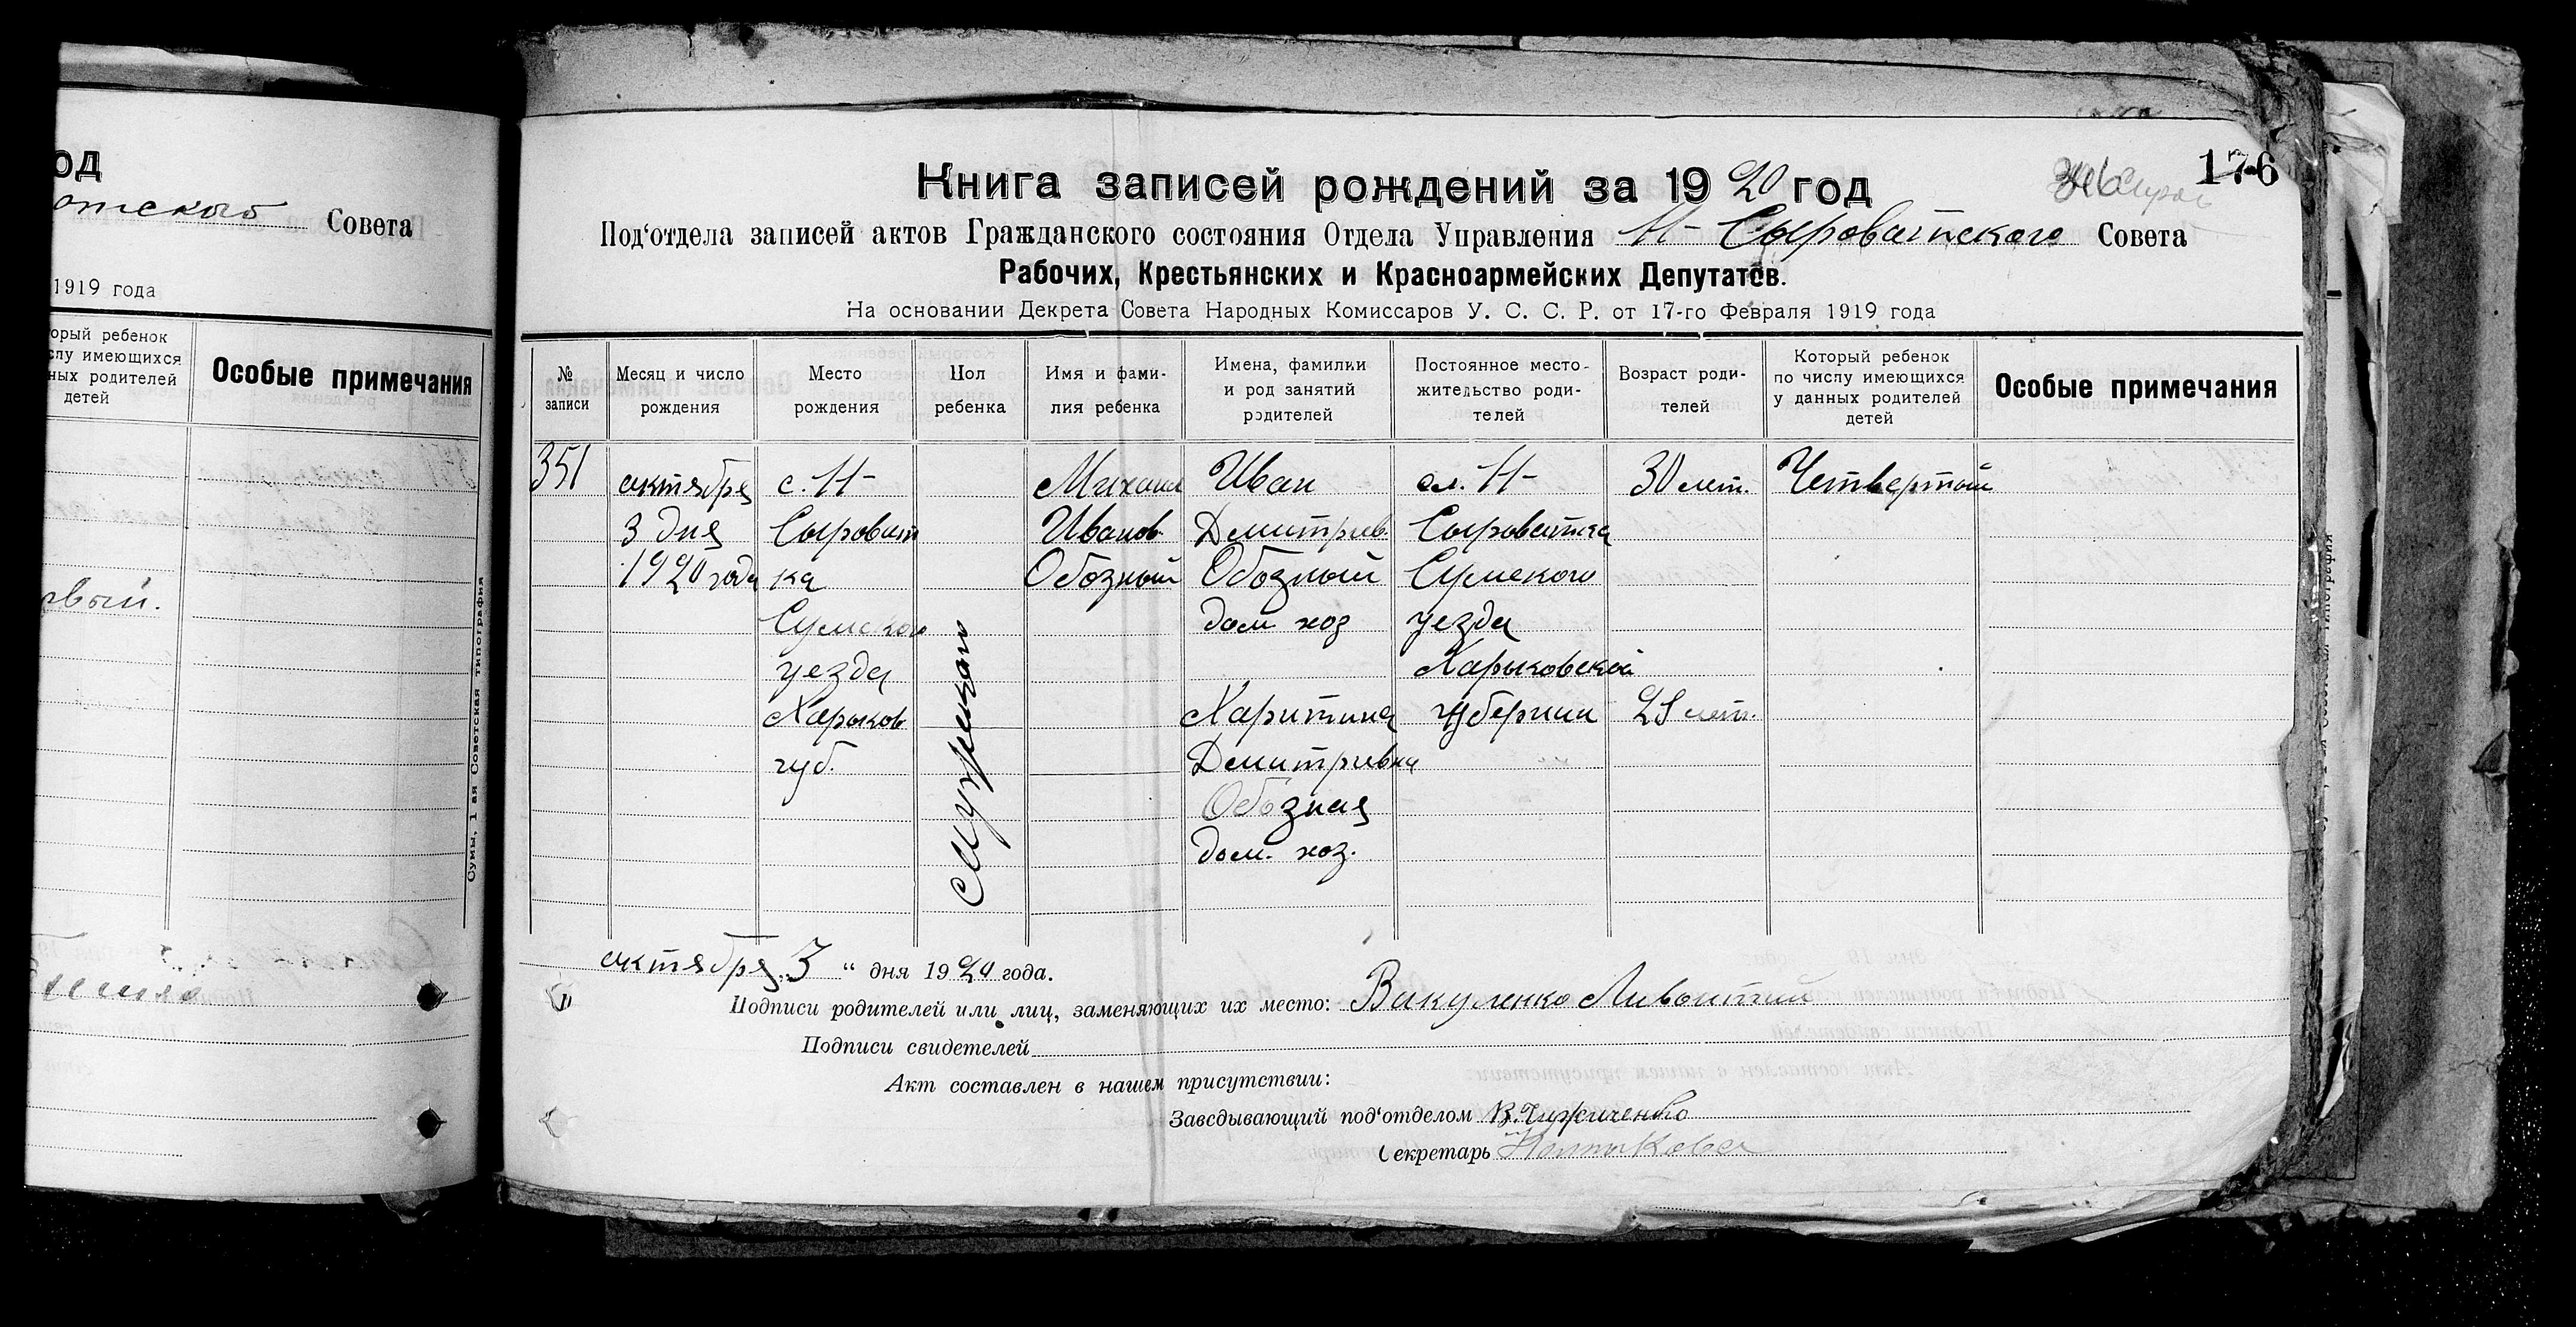 од
отского Совета
1919 года
орый ребенок
слу имеющихся
ных родителей
детей
Особые примечания
рвый.
Сумы, 1 ая Советская типография
176
Книга записей рождений за 1920 год
Под‘отдела записей актов Гражданского состояния Отдела Управления Н- Сыроватского Совета
Рабочих, Крестьянских и Красноармейских Депутатов.
На основании Декрета Совета Народных Комиссаров У. С. С. Р. от 17-го Февраля 1919 года
№ записи
Месяц и число рождения
Место рождения
Пол ребенка
Имя и фами-
лия ребенка
Имена, фамилии
и род занятий
родителей
Постоянное место-
жительство роди-
телей
Возраст роди-
телей
Который ребенок
по числу имеющихся
у данных родителей
детей
Особые примечания
351
октября
3 дня
1920 года
с. Н-
Сыроват
ка
Сумского
уезда
Харьков
губ.
Мужского
Михаил
Иванов
Обозный
Иван
Дмитриев.
Обозный
дом хоз
Харитина
Дмитриевна
Обозная
дом. хоз.
сл. Н-
Сыроватка
Сумского
уезда
Харьковской
губернии
30 лет.
28 лет.
Четвертый
октября 3 “ дня 1920 года.
Подписи родителей или лиц, заменяющих их место: Вакуленко
Подписи свидетелей
Акт составлен в нашем присутствии:
Заведывающий под‘отделом В. Чижиченко
Секретарь